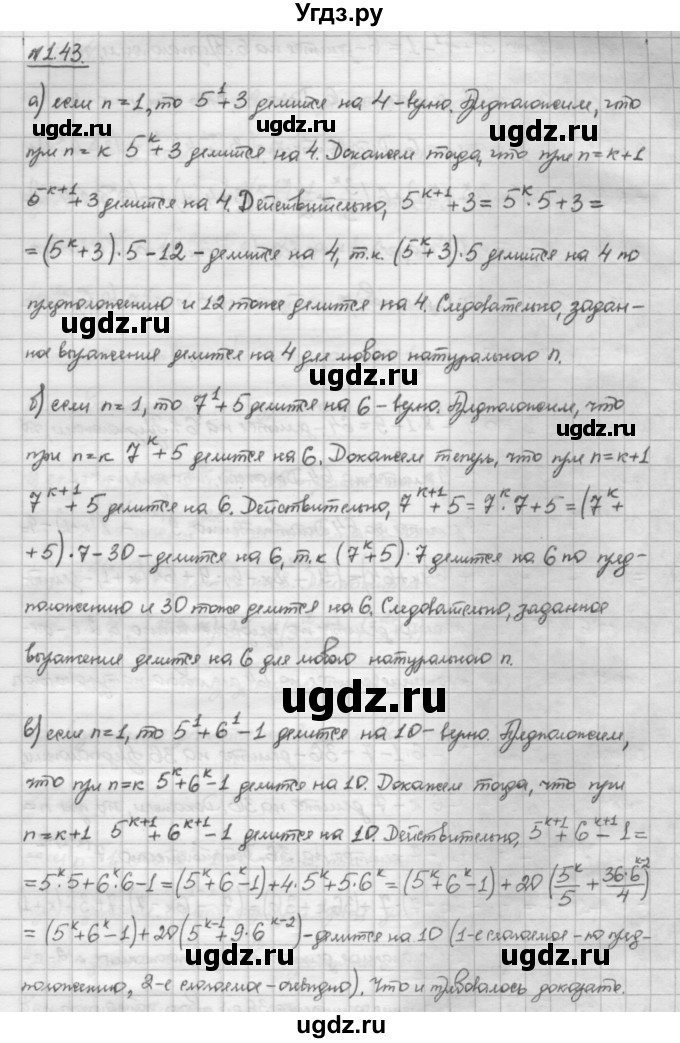 Угдз.ру
№1.43.
а) если n=1, то 5¹+3 делится на 4-верно. Предположим, что
ugdz.ru ugdz.ru
при n=к 5ᵏ+3 делится на 4. Докажем тогда, что при n=к+1
5ᵏ⁺¹+3 делится на 4. Действительно, 5ᵏ⁺¹+3=5ᵏ·5+3=
=(5ᵏ+3)·5-12-делится на 4, т.к. (5ᵏ+3)·5 делится на 4 по
предположению и 12 тоже делится на 4. Следовательно, задан-
ugdz.ru
ное выражение делится на 4 для любого натурального n.
ugdz.ru
б) если n=1, то 7¹+5 делится на 6-верно. Предположим, что
при n=к 7ᵏ+5 делится на 6. Докажем теперь, что при n=к+1
ugdz.ru
7ᵏ⁺¹+5 делится на 6. Действительно, 7ᵏ⁺¹+5=7ᵏ·7+5=(7ᵏ+
ugdz.ru
+5)·7-30-делится на 6, т.к (7ᵏ+5)·7 делится на 6 по пред-
положению и 30 тоже делится на 6. Следовательно, заданное
ugdz.ru
выражение делится на 6 для любого натурального n.
ugdz.ru
в) если n=1, то 5¹+6¹-1 делится на 10-верно. Предположим,
что при n=к 5ᵏ+6ᵏ-1 делится на 10. Докажем тогда, что при
n=к+1 5ᵏ⁺¹+6ᵏ⁺¹-1 делится на 10. Действительно, 5ᵏ⁺¹+6ᵏ⁺¹-1=
ugdz.ru ugdz.ru
=5ᵏ·5+6ᵏ·6-1=(5ᵏ+6ᵏ-1)+4·5ᵏ+5·6ᵏ=(5ᵏ+6ᵏ-1)+20(5ᵏ/5+36·6ᵏ⁻²/4)
=(5ᵏ+6ᵏ-1)+20(5ᵏ⁻¹+9·6ᵏ⁻²)-делится на 10 (1-е слагаемое-по пред-
ugdz.ru
положению, 2-е слагаемое-очевидно). Что и требовалось доказать.
ugdz.ru